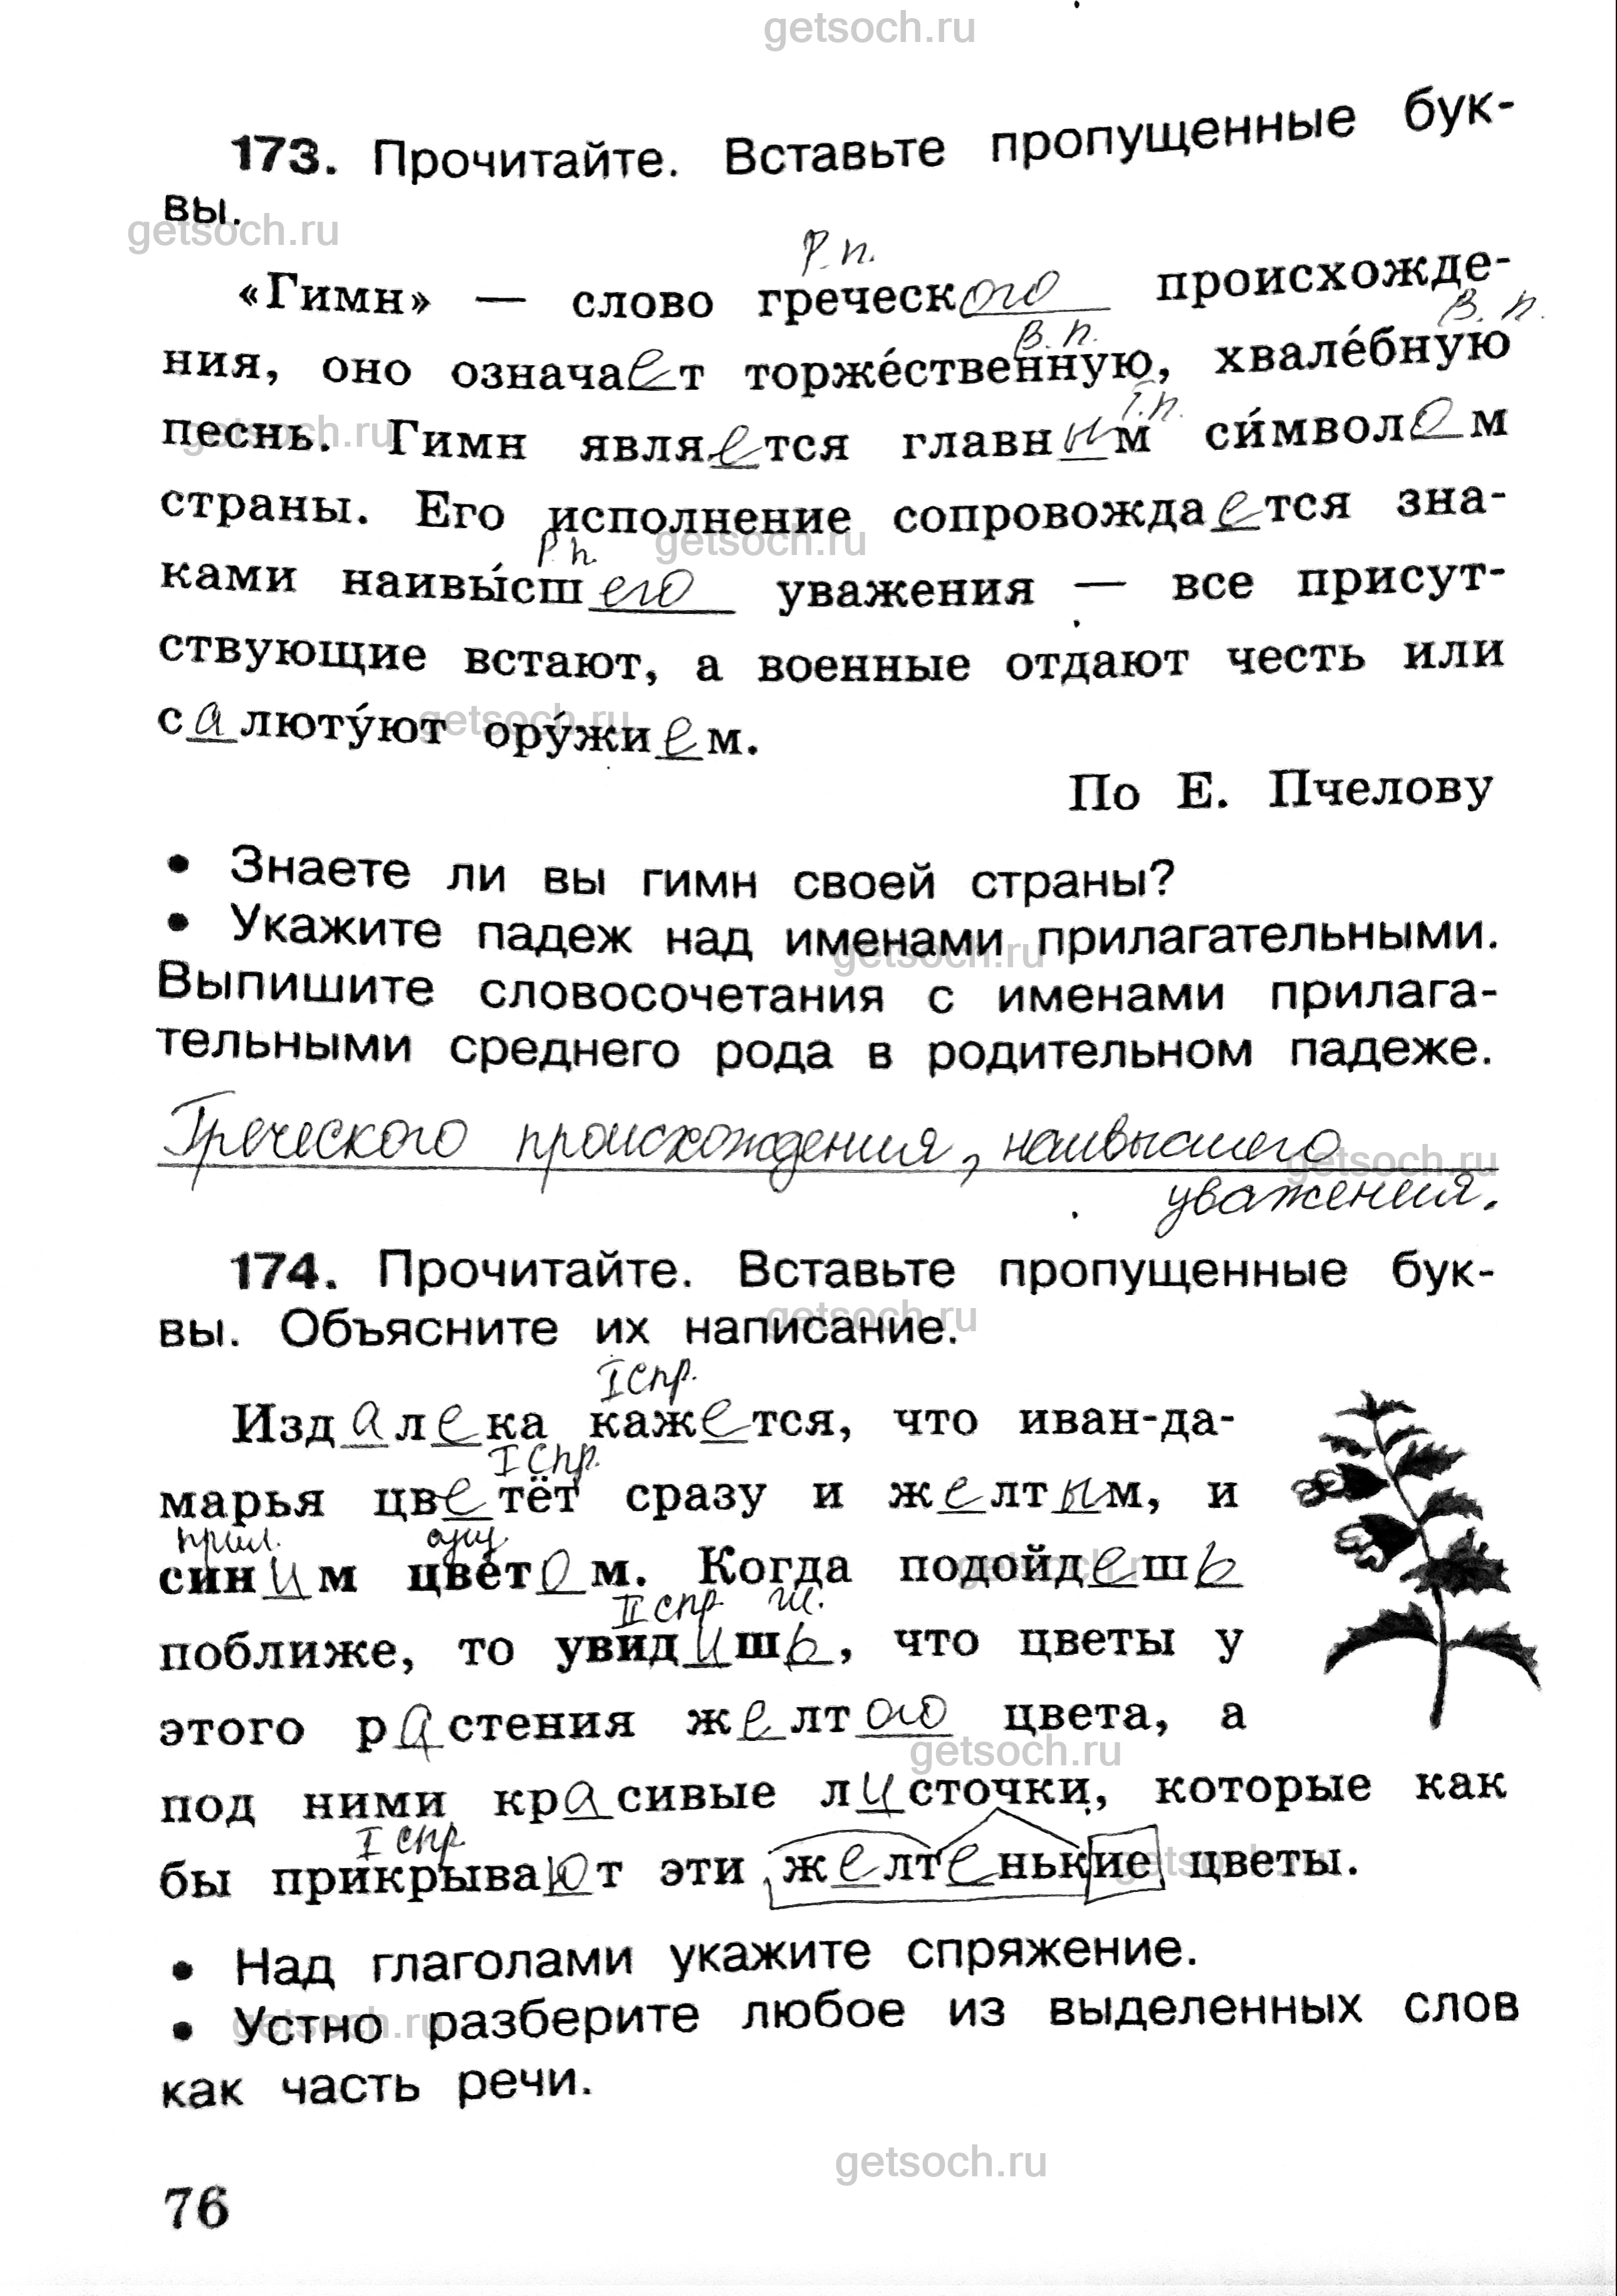 getsoch.ru
173. Прочитайте. Вставьте пропущенные бук-
вы.
getsoch.ru
Р.п.
«Гимн» — слово греческого происхожде-
В.п. В.п.
ния, оно означает торже́ственную, хвале́бную
Т.п.
песнь. Гимн является главным си́мволом
getsoch.ru
страны. Его исполнение сопровождается зна-
getsoch.ru
Р.п.
ками наивы́сшего уважения — все присут-
ствующие встают, а военные отдают честь или
салюту́ют ору́жием.
getsoch.ru
По Е. Пчелову
• Знаете ли вы гимн своей страны?
• Укажите падеж над именами прилагательными.
getsoch.ru
Выпишите словосочетания с именами прилага-
тельными среднего рода в родительном падеже.
Греческого происхождения, наивысшего
getsoch.ru
уважения.
174. Прочитайте. Вставьте пропущенные бук-
вы. Объясните их написание.
getsoch.ru
I спр.
Издалека кажется, что иван-да-
I спр.
марья цветёт сразу и желтым, и
прил. сущ.
синим цветом. Когда подойдешь
getsoch.ru
II спр. ш.
поближе, то увидишь, что цветы у
этого растения желтого цвета, а
getsoch.ru
под ними красивые листочки, которые как
I спр.
бы прикрывают эти желтенькие цветы.
getsoch.ru
• Над глаголами укажите спряжение.
• Устно разберите любое из выделенных слов
getsoch.ru
как часть речи.
getsoch.ru
76